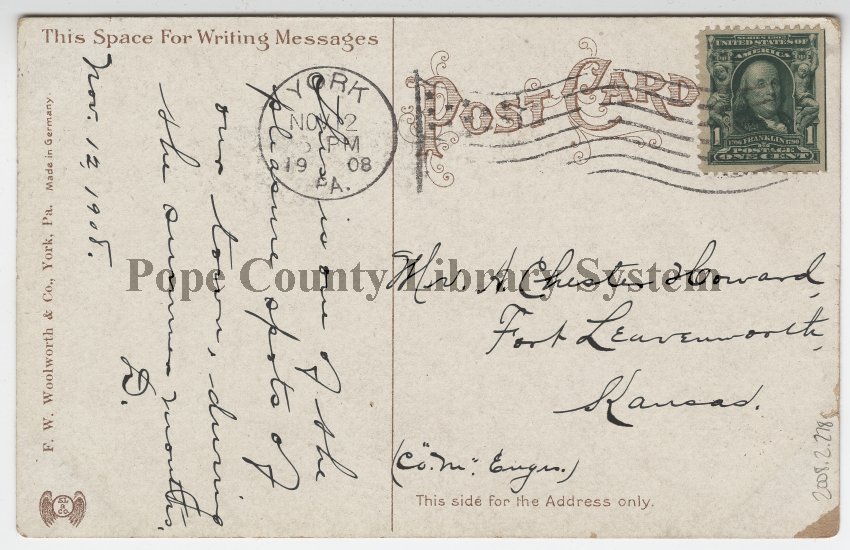 This Space For Writing Messages
POST CARD
SERIES 1902
UNITED STATES OF
AMERICA
1706 FRANKLIN 1790
1 POSTAGE 1
ONE CENT
YORK
NOV 12
PM
19 08
PA.
This is one of the
pleasure spots of
our town, during
the summer months.
D.
Nov. 12, 1908.
Mr. A. Chester Howard,
Fort Leavenworth,
Kansas.
(Co. "M". Engrs.)
This side for the Address only.
F. W. Woolworth & Co., York, Pa. Made in Germany
Pope County Library System
2008.2.278